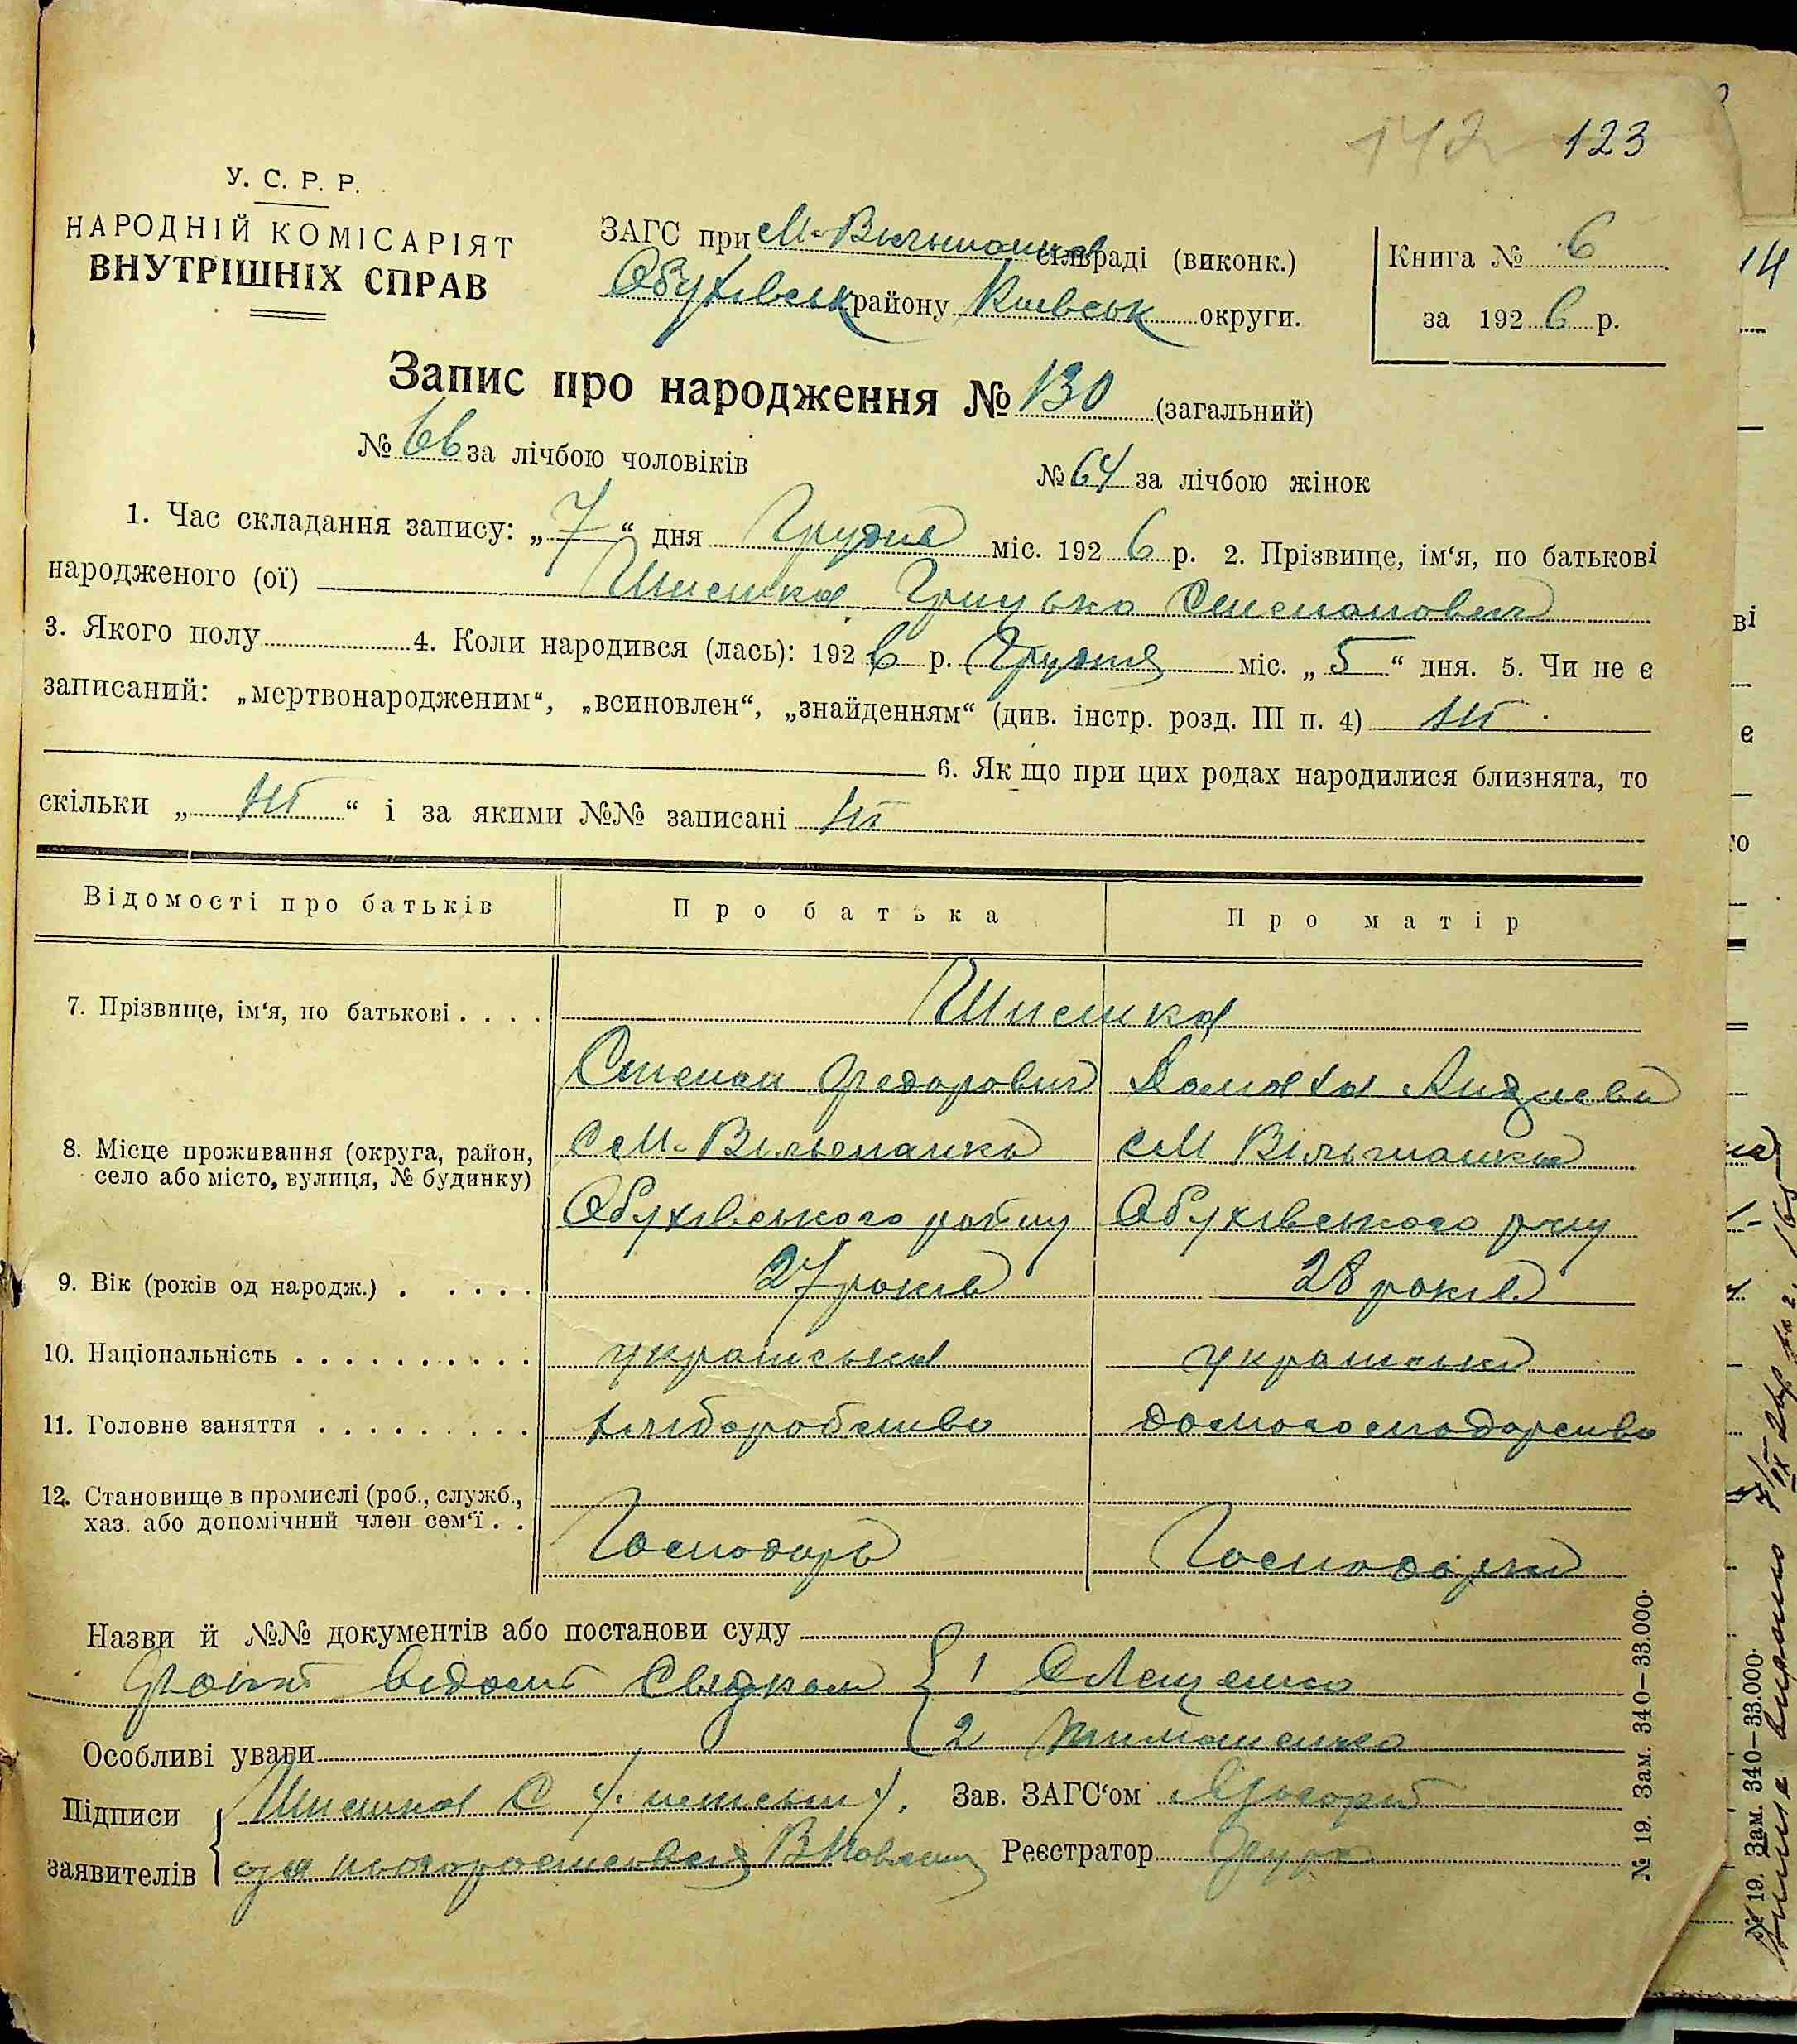 142 123
У. С. Р. Р.
НАРОДНІЙ КОМІСАРІЯТ
ВНУТРІШНІХ СПРАВ
ЗАГС при М-Вільшанськ сільраді (виконк.)
Обухівськ району Київськ округи.
Книга № 6
за 1926 р.
14
Запис про народження № 130 (загальний)
№ 66 за лічбою чоловіків № 64 за лічбою жінок
1. Час складання запису: „7“ дня Грудня міс. 1926 р. 2. Прізвище, ім‘я, по батькові
народженого (ої) Шишка Грицько Степанович
3. Якого полу 4. Коли народився (лась): 1926 р. Грудня міс. „5“ дня. 5. Чи не є
записаний: „мертвонародженим“, „всиновлен“, „знайденням“ (див. інстр. розд. III п. 4) ні
6. Як що при цих родах народилися близнята, то
скільки „ні“ і за якими №№ записані ні
Відомості про батьків Про батька Про матір
7. Прізвище, ім‘я, по батькові Шишка
Степан Федорович Домаха
8. Місце проживання (округа, район,
село або місто, вулиця, № будинку)
С М-Вільшанка с М Вільшанка
Обухівського району Обухівського р-ну
9. Вік (років од народж.) 27 років 28 років
10. Національність українська українська
11. Головне заняття хліборобство домогосподарство
12. Становище в промислі (роб., служб.,
хаз. або допомічний член сем‘ї
Господарь Господарка
Назви й №№ документів або постанови суду
факт відом свідкам { 1 С Лещенко
2 Тимошенко
Особливі уваги
Підписи Шишка С Зав. ЗАГС‘ом
заявителів Реєстратор
№ 19. Зам. 340—33.000.
№ 19. Зам. 340—33.000.